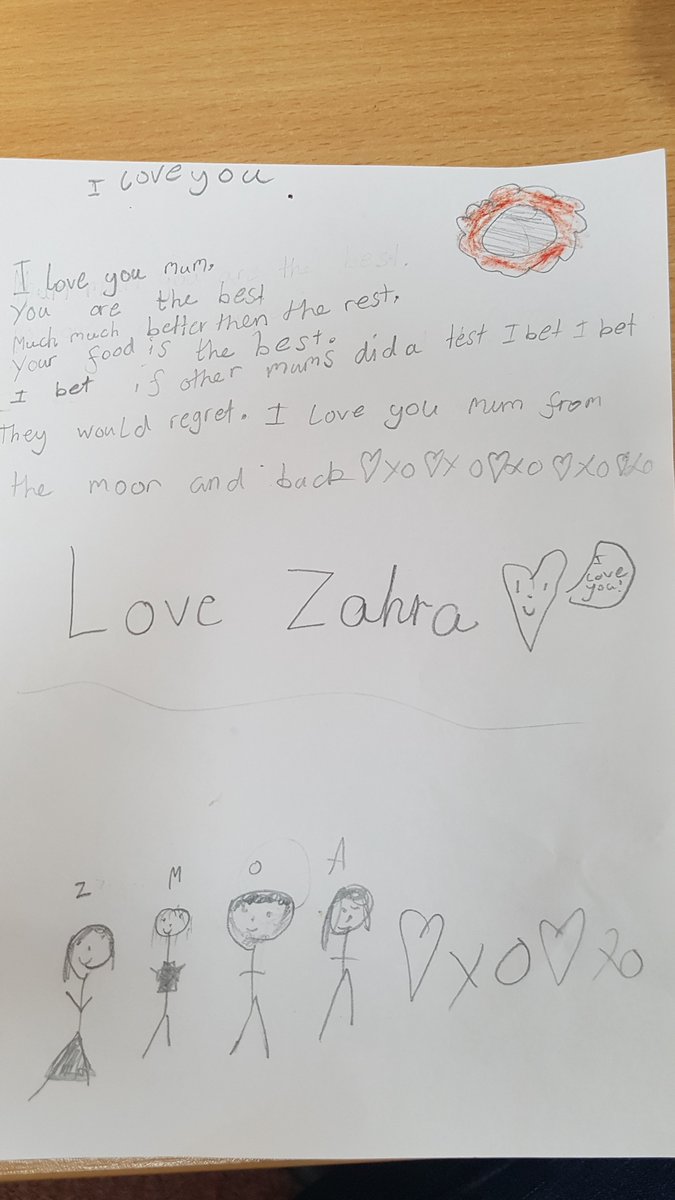 I love you.
I love you mum.
You are the best
Much much better then the rest.
Your food is the best.
I bet if other mums did a test I bet I bet
They would regret. I love you mum from
the moon and back ♡xo♡xo♡xo♡xo♡xo
Love Zahra
I love you!
Z M O A
♡xo♡xo